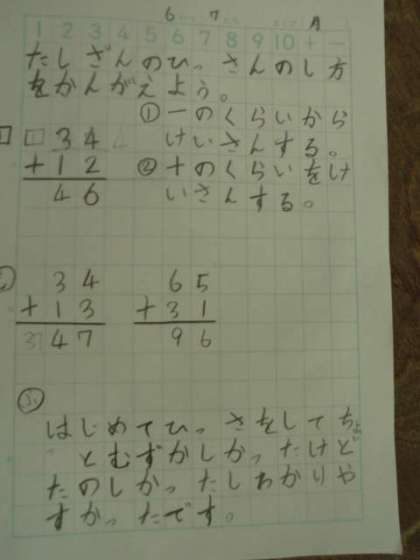 6 7 A
1 2 3 4 5 6 7 8 9 10 + −
たしざんのひっさんのし方
をかんがえよう。
①一のくらいから
けいさんする。
②十のくらいをけ
いさんする。
34
+12
46
34
+13
47
65
+31
96
はじめてひっさをしてちょ
っとむずかしかったけど
たのしかったしわかりや
すかったです。